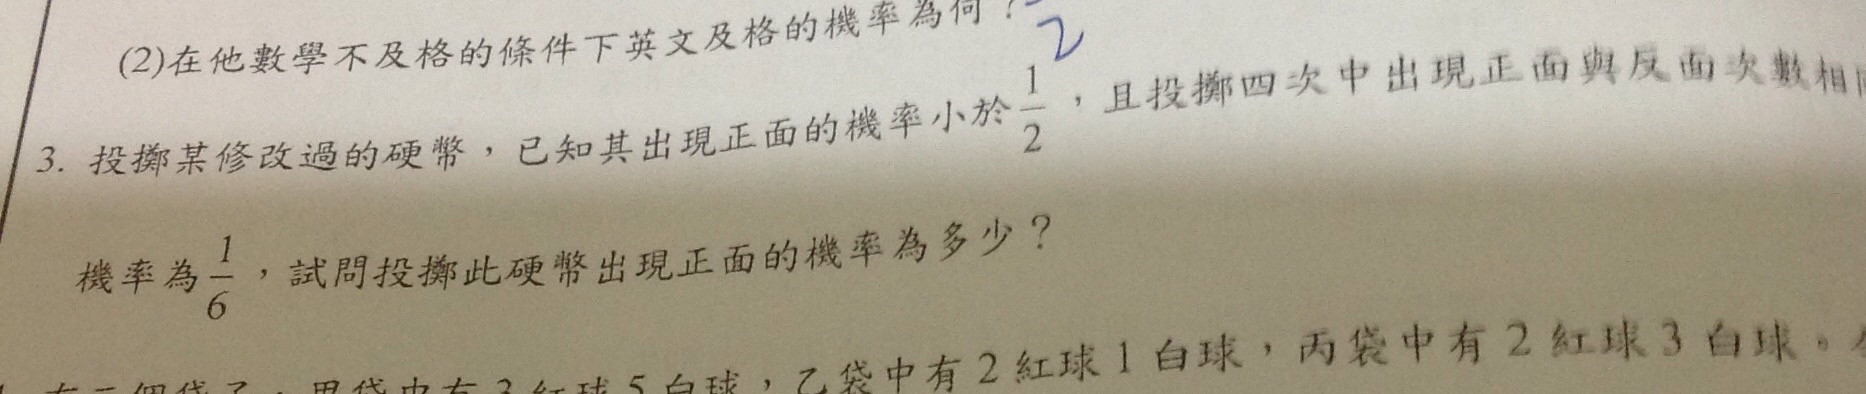 (2)在他數學不及格的條件下英文及格的機率為何？
2
3. 投擲某修改過的硬幣，已知其出現正面的機率小於 1/2 ，且投擲四次中出現正面與反面次數相
機率為 1/6 ，試問投擲此硬幣出現正面的機率為多少？
袋中有 3 紅球 5 白球，乙袋中有 2 紅球 1 白球，丙袋中有 2 紅球 3 白球。